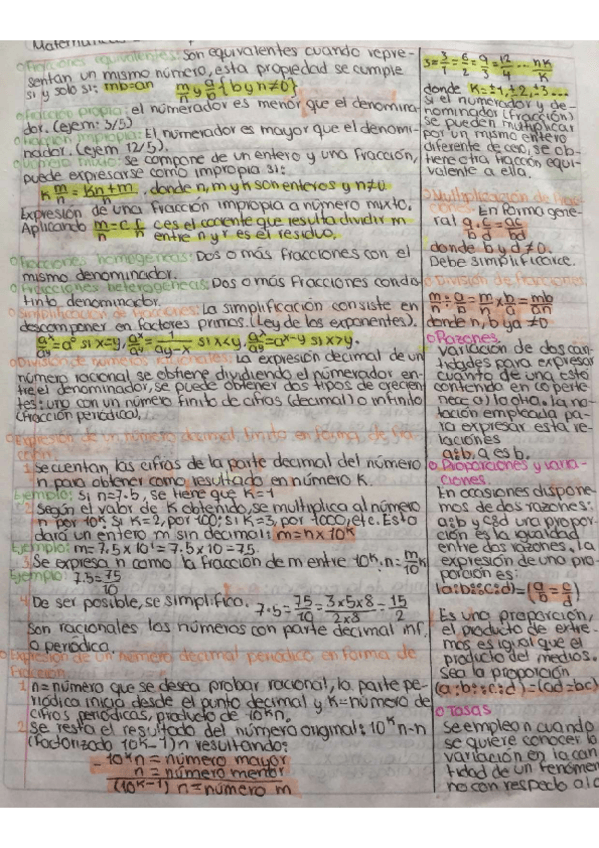 Matemáticas
○Fracciones equivalentes: Son equivalentes cuando repre-
sentan un mismo número, esta propiedad se cumple
si y solo si: mb=an m/n y a/b {b y n≠0}
○Fracción propia: el númerador es menor que el denomina-
dor. (ejem: 3/5)
○Fracción impropia: El númerador es mayor que el denomi-
nador. (ejem 12/5).
mixto: se compone de un entero y una fracción,
puede expresarse como impropia si:
k m/n = kn+m/n, donde n, m y k son enteros y n≠0
Expresión de una fracción impropia a número mixto.
Aplicando m/n = c r/n c es el cociente que resulta dividir m
entre n y r es el residuo.
○Fracciones homogéneas: Dos o más fracciones con el
mismo denominador.
○Fracciones heterogéneas: Dos o más fracciones con dis-
tinto denominador.
○Simplificación de fracciones: La simplificación consiste en
descomponer en factores primos. (Ley de los exponentes).
aˣ/aʸ=a⁰ si x=y, aˣ/aʸ=1/aʸ⁻ˣ si x<y, aˣ/aʸ=aˣ⁻ʸ si x>y.
○División de números racionales: La expresión decimal de un
número racional se obtiene dividiendo el númerador en-
tre el denominador, se puede obtener dos tipos de crecien
tes: uno con un número finito de cifras (decimal) o infinito
(fracción periódica).
○Expresión de un número decimal finito en forma de fra-
cción.
1. Se cuentan, las cifras de la parte decimal del número
n para obtener como resultado en número K.
Ejemplo: Si n=7.5, se tiene que K=1
2. Según el valor de K obtenido, se multiplica al número
n por 10ᴷ si K=2, por 100; si K=3, por 1000, etc. Esto
dará un entero m sin decimal: m=n×10ᴷ
Ejemplo: m=7.5×10¹=7.5×10=75
3. Se expresa n como la fracción de m entre 10ᴷ. n=m/10ᴷ
Ejemplo: 7.5=75/10
4. De ser posible, se simplifica. 7.5=75/10=3×5×8/2×8=15/2
Son racionales los números con parte decimal inf.
o periódica.
○Expresión de un número decimal periódico en forma de
fracción
1. n=número que se desea probar racional, la parte pe-
riódica inicia desde el punto decimal y K=número de
cifras periódicas, producto de 10ᴷn.
2. Se resta el resultado del número original: 10ᴷn-n
(factorizado 10K-1)n resultando:
- 10ᴷn = número mayor
n = número menor
(10ᴷ-1) n = número m
3=3/1=6/2=9/3=12/4...nk/k
donde K=±1,±2,±3...
Si el númerador y de-
nominador (fracción)
se pueden multiplicar
por un mismo entero
diferente de cero, se ob-
tiene otra fracción equi-
valente a ella.
○Multiplicación de frac-
ciones: En forma gene-
ral a/b · c/d = ac/bd
donde b y d ≠0.
Debe simplificarce.
○División de fracciones
m/n ÷ a/b = m/n × b/a = mb/an
donde n, b y a ≠0
○Razones.
variación de dos can-
tidades para expresar
cuánto de una está
contenido en (o perte-
nece a) la otra. La no-
tación empleada pa-
ra expresar esta re-
laciones
a:b, a es b.
○Proporciones y varia-
ciones.
En ocasiones dispone-
mos de dos razones:
a:b y c:d una propor-
ción es la igualdad
entre dos razones. La
expresión de una pro-
porción es:
(a:b::c:d)=(a/b=c/d)
Es una proporción,
el producto de extre-
mos es igual que el
producto del medios.
Sea la proporción
(a:b::c:d)=(ad=bc)
○Tasas
Se emplean cuando
se quiere conocer la
variación en la can
tidad de un fenómen
no con respecto a la